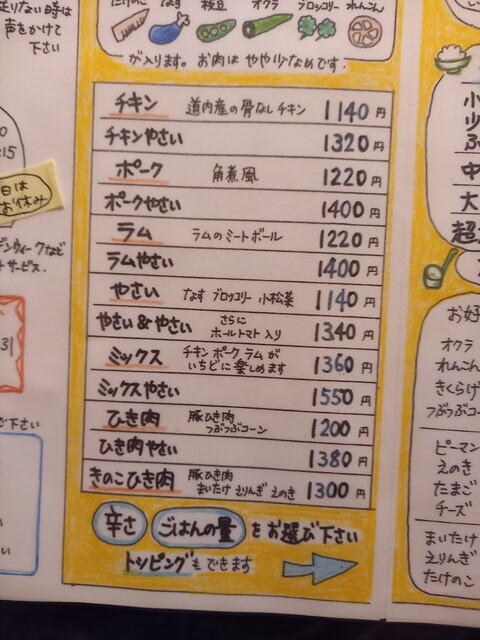 足りない時は
声をかけて
下さい
たけのこ なす 枝豆 オクラ ブロッコリー れんこん
が入ります。お肉は やや少なめです。
チキン 道内産の骨なしチキン 1140円
チキンやさい 1320円
ポーク 角煮風 1220円
ポークやさい 1400円
ラム ラムのミートボール 1220円
ラムやさい 1400円
やさい なす ブロッコリー 小松菜 1140円
やさい&やさい さらに ホールトマト入り 1340円
ミックス チキン ポーク ラムが いちどに楽しめます 1360円
ミックスやさい 1550円
ひき肉 豚ひき肉 つぶつぶコーン 1200円
ひき肉やさい 1380円
きのこひき肉 豚ひき肉 まいたけ えりんぎ えのき 1300円
辛さ ごはんの量 をお選び下さい
トッピングもできます
:15
日は
お休み
サービス.
31
下さい
小
少
中
大
超
お好
オクラ
れんこん
きくらげ
つぶつぶコー
ピーマン
えのき
たまご
チーズ
まいたけ
えりんぎ
たけのこ